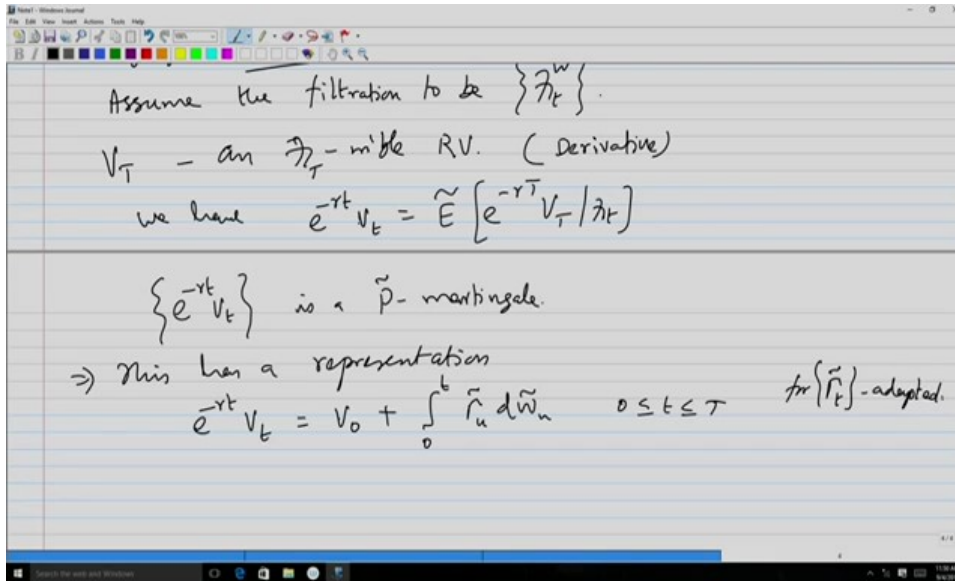 Note1 - Windows Journal
File Edit View Insert Actions Tools Help
Assume the filtration to be {ℱ_t^W}.
V_T - an ℱ_T-m'ble RV. (Derivative)
we have e^{-rt} V_t = Ẽ [e^{-rT} V_T / ℱ_t]
{e^{-rt} V_t} is a P̃-martingale.
⇒ This has a representation
e^{-rt} V_t = V_0 + ∫_0^t Γ̃_u dW̃_u 0 ≤ t ≤ T for {Γ̃_t}-adapted.
4/4
Search the web and Windows